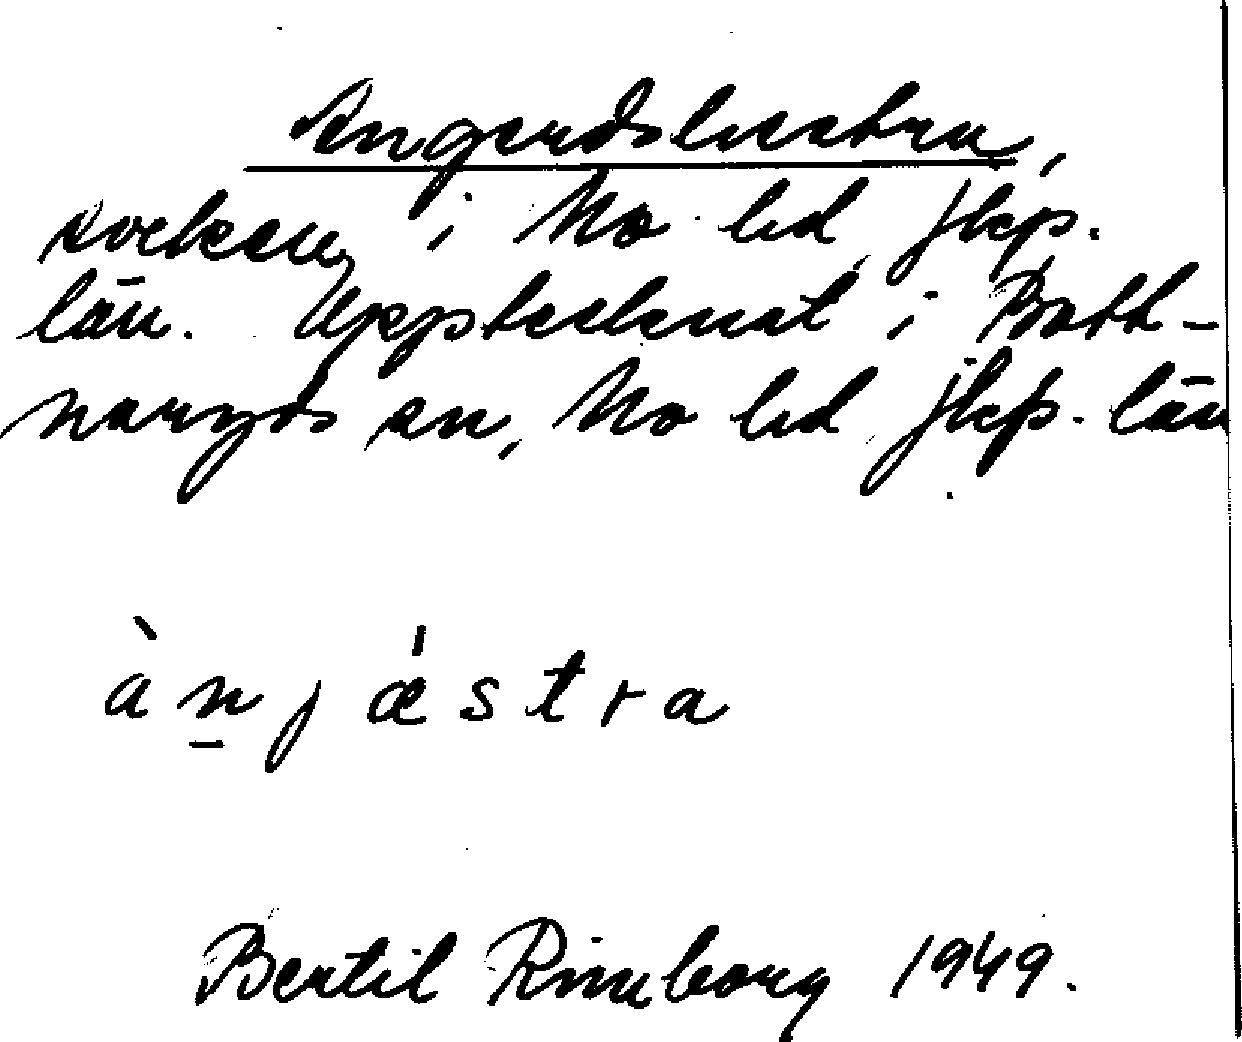 Angerdshestra,
socken, i Mo hd Jkp.
län. Upptecknat i Bott-
naryds sn, Mo hd Jkp. län
àn̠jæ̀stra
Bertil Rimborg 1949.